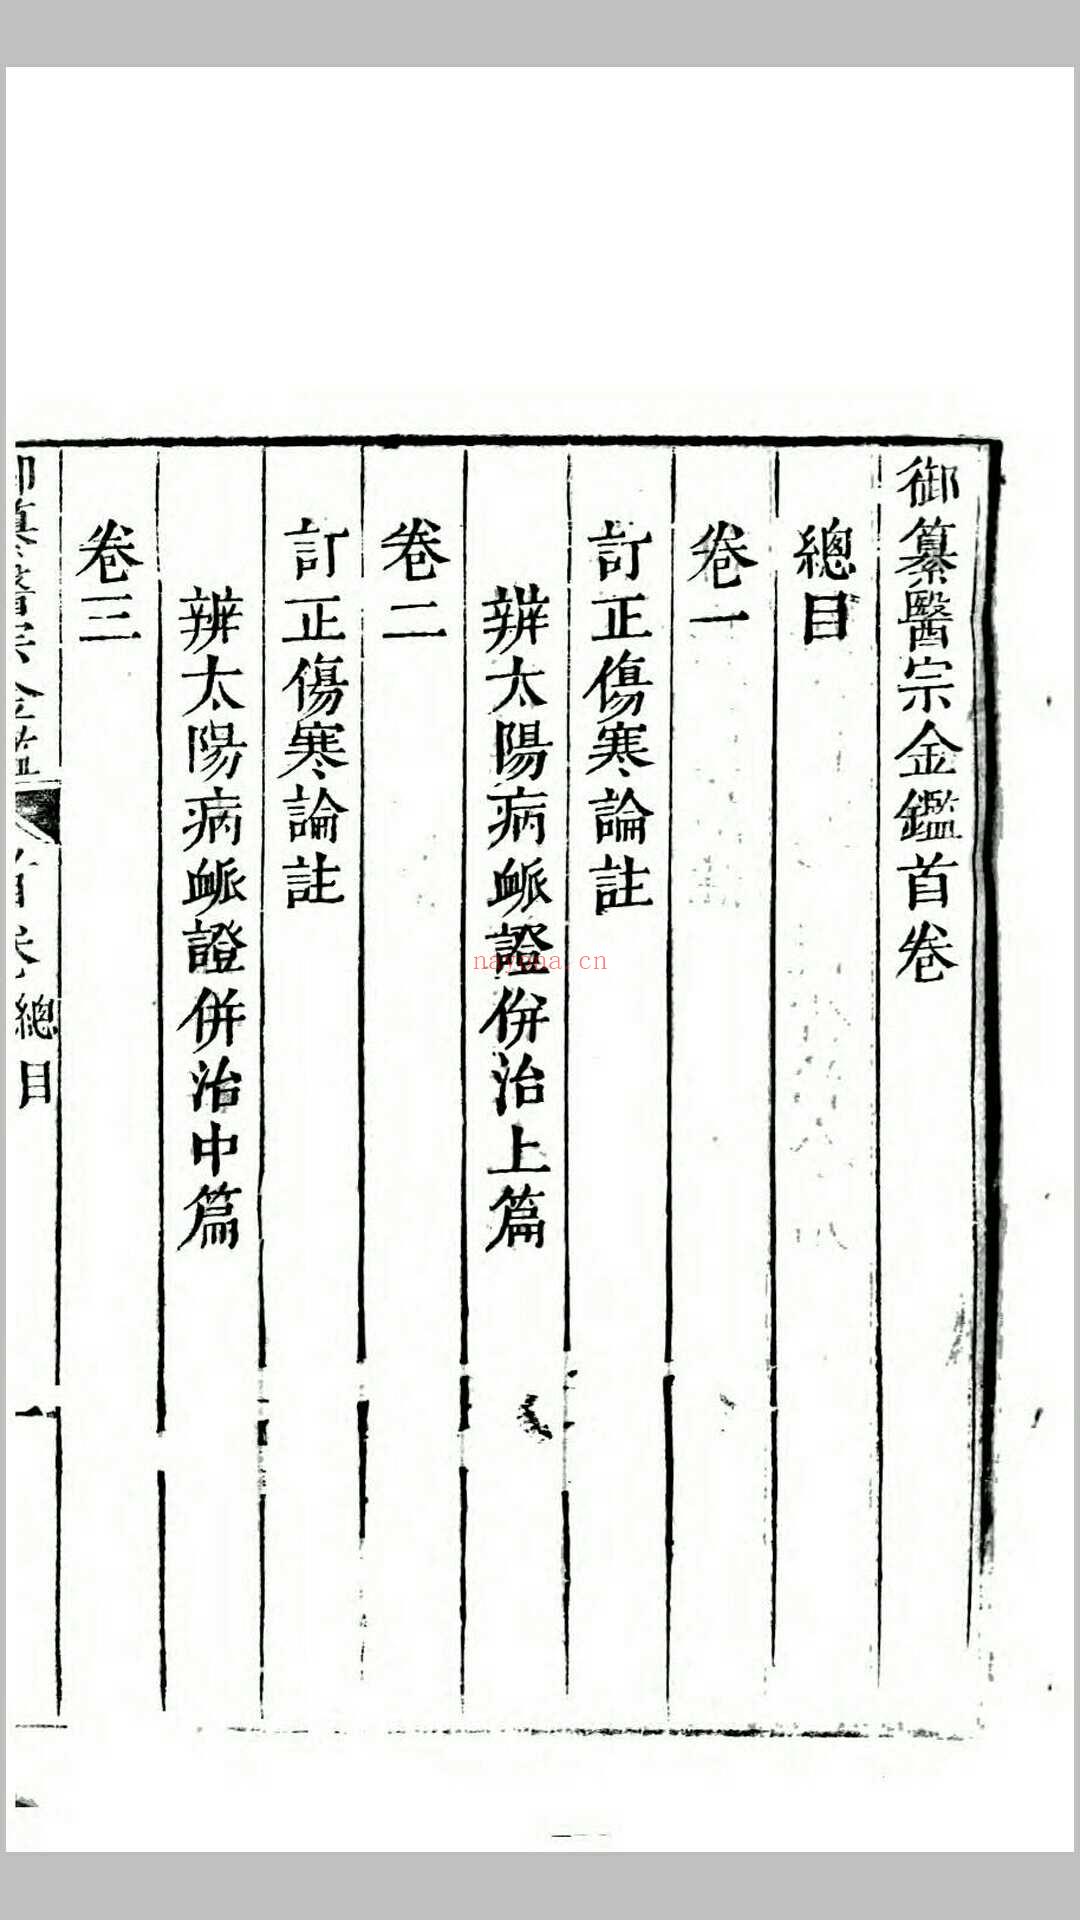 御纂醫宗金鑑首卷
總目
卷一
訂正傷寒論註
辨太陽病脈證併治上篇
卷二
訂正傷寒論註
辨太陽病脈證併治中篇
卷三
御纂醫宗金鑑 首卷 總目 一
nayona.cn